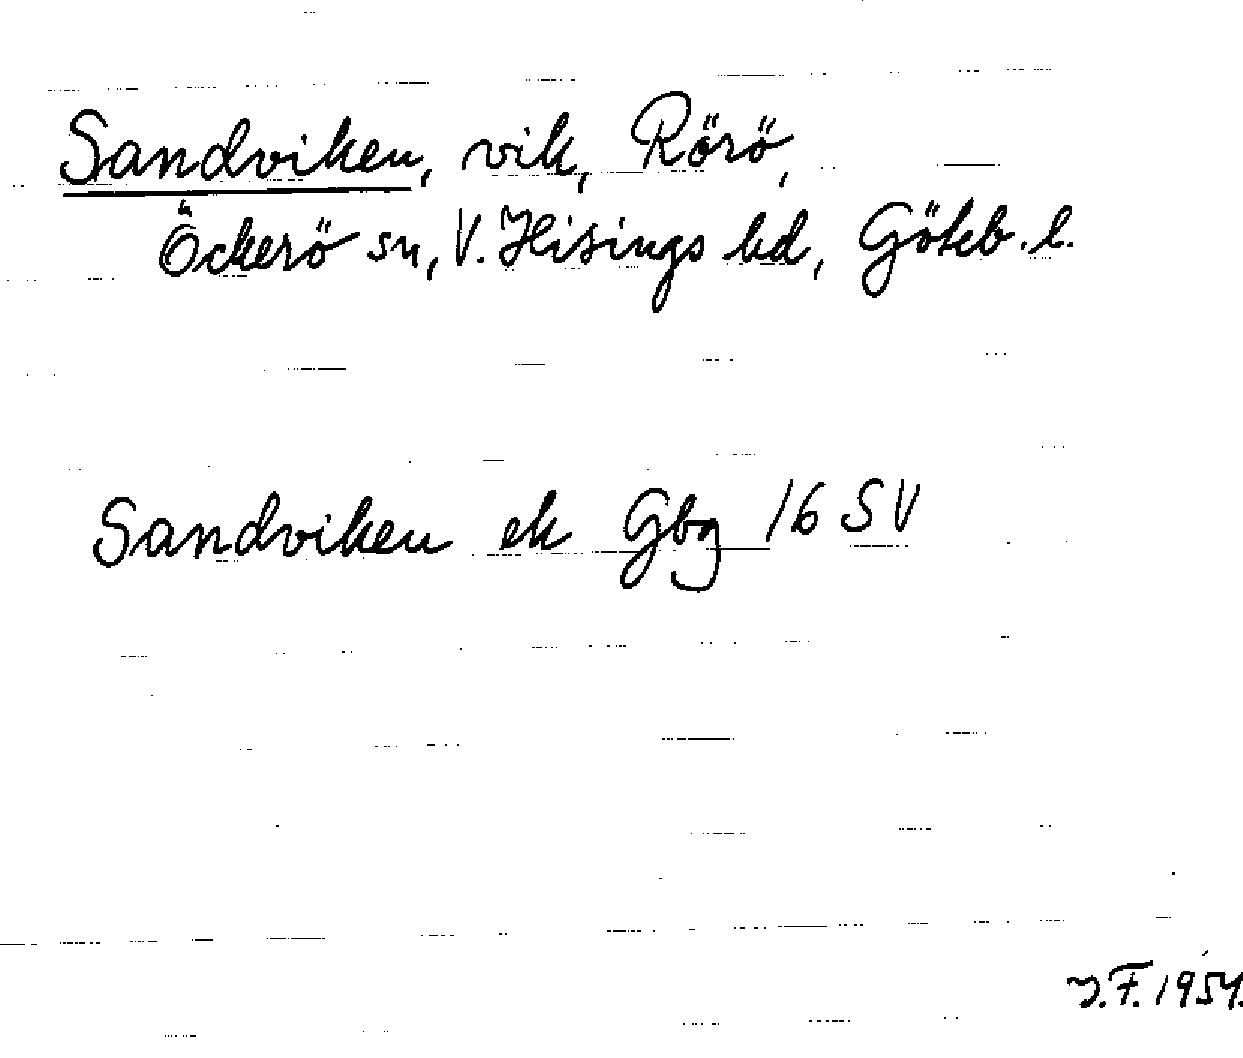 Sandviken, vik, Rörö,
Öckerö sn, V. Hisings hd, Göteb. l.
Sandviken ek Gbg 16 SV
J.F. 1954.